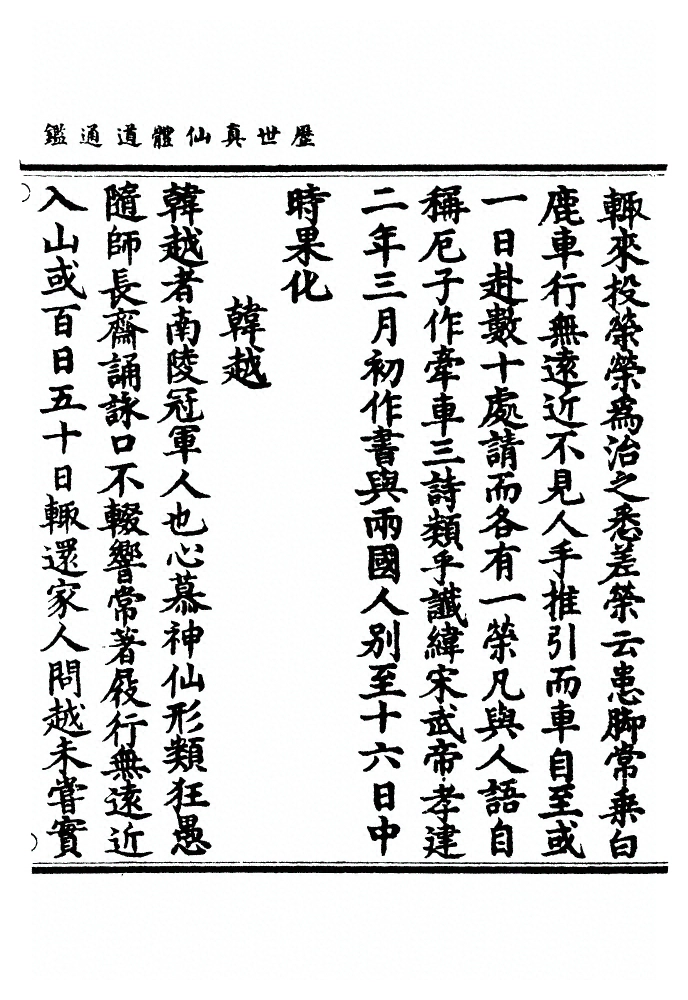 歷世真仙體道通鑑
輙來投榮榮爲治之悉差榮云患脚常乗白
鹿車行無遠近不見人手推引而車自至或
一日赴數十處請而各有一榮凡與人語自
稱厄子作牽車三詩類乎讖緯宋武帝孝建
二年三月初作書與兩國人别至十六日中
時果化
韓越
韓越者南陵冠軍人也心慕神仙形類狂愚
隨師長齋誦詠口不輟響常著屐行無遠近
入山或百日五十日輙還家人問越未甞實